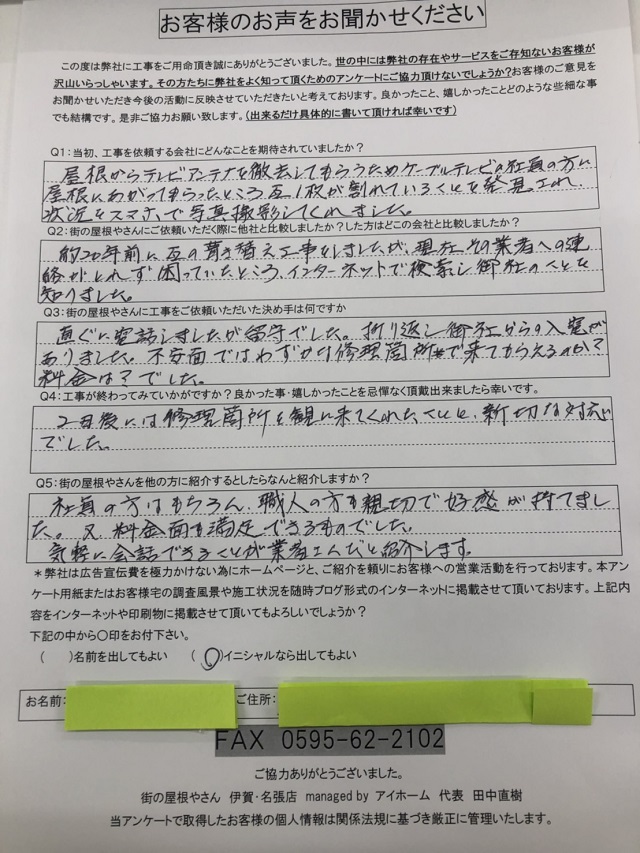 お客様のお声をお聞かせください
この度は弊社に工事をご用命頂き誠にありがとうございました。世の中には弊社の存在やサービスをご存知ないお客様が
沢山いらっしゃいます。その方たちに弊社をよく知って頂くためのアンケートにご協力頂けないでしょうか?お客様のご意見を
お聞かせいただき今後の活動に反映させていただきたいと考えております。良かったこと、嬉しかったことどのような些細な事
でも結構です。是非ご協力お願い致します。(出来るだけ具体的に書いて頂ければ幸いです)
Q1:当初、工事を依頼する会社にどんなことを期待されていましたか?
屋根からテレビアンテナを撤去してもらうためケーブルテレビの社員の方に
屋根にあがってもらったところ瓦1枚が割れていることを発見され、
状況をスマホで写真撮影してくれました。
Q2:街の屋根やさんにご依頼いただく際に他社と比較しましたか?した方はどこの会社と比較しましたか?
約20年前に瓦の葺き替え工事をしましたが、現在その業者への連
絡がとれず困っていたところ、インターネットで検索し御社のことを
知りました。
Q3:街の屋根やさんに工事をご依頼いただいた決め手は何ですか
直ぐに電話しましたが留守でした。折り返し御社からの入電が
ありました。不安面ではわずかな修理箇所で来てもらえるのか?
料金は?でした。
Q4:工事が終わってみていかがですか?良かった事・嬉しかったことを忌憚なく頂戴出来ましたら幸いです。
2日後には修理箇所を観に来てくれたことと、親切な対応
でした。
Q5:街の屋根やさんを他の方に紹介するとしたらなんと紹介しますか?
社員の方はもちろん、職人の方も親切で好感が持てまし
た。又、料金面も満足できるものでした。
気軽に会話できることが業者さんだと紹介します。
*弊社は広告宣伝費を極力かけない為にホームページと、ご紹介を頼りにお客様への営業活動を行っております。本アン
ケート用紙またはお客様宅の調査風景や施工状況を随時ブログ形式のインターネットに掲載させて頂いております。上記内
容をインターネットや印刷物に掲載させて頂いてもよろしいでしょうか?
下記の中から〇印をお付下さい。
( )名前を出してもよい (〇)イニシャルなら出してもよい
お名前: ご住所:
FAX 0595-62-2102
ご協力ありがとうございました。
街の屋根やさん 伊賀・名張店 managed by アイホーム 代表 田中直樹
当アンケートで取得したお客様の個人情報は関係法規に基づき厳正に管理いたします。